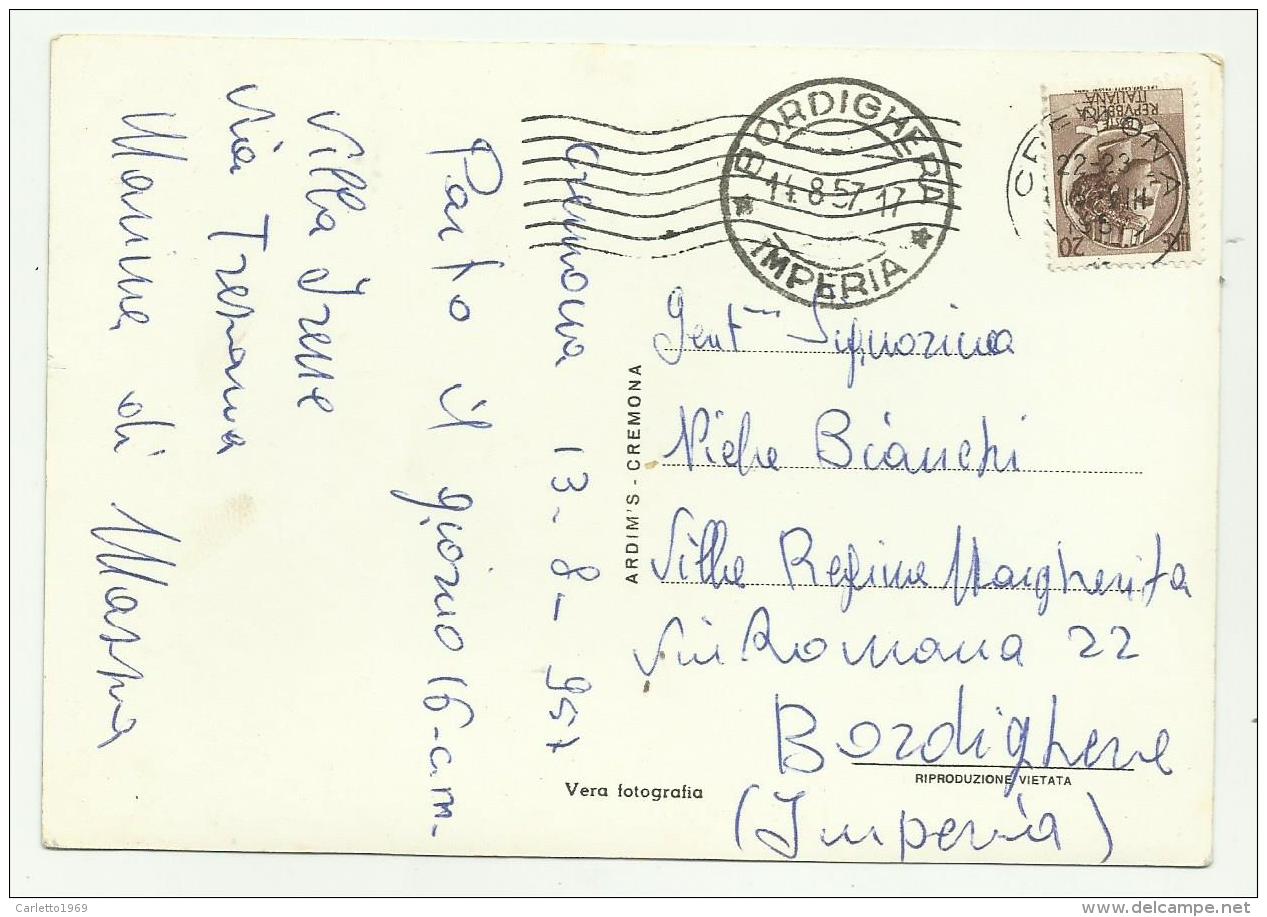 Cremona 13-8-957
Parto il giorno 16-c.m.
Villa Irene
Via
Marina di Massa
BORDIGHERA
14.8.57.17
IMPERIA
REPVBBLICA
ITALIANA
20
CREMONA
22-23
ARDIM'S - CREMONA
Gent Signorina
Bianchi
Villa Regina Margherita
Via Romana 22
Bordighera
(Imperia)
RIPRODUZIONE VIETATA
Vera fotografia
Carletto1969
delcampe.net